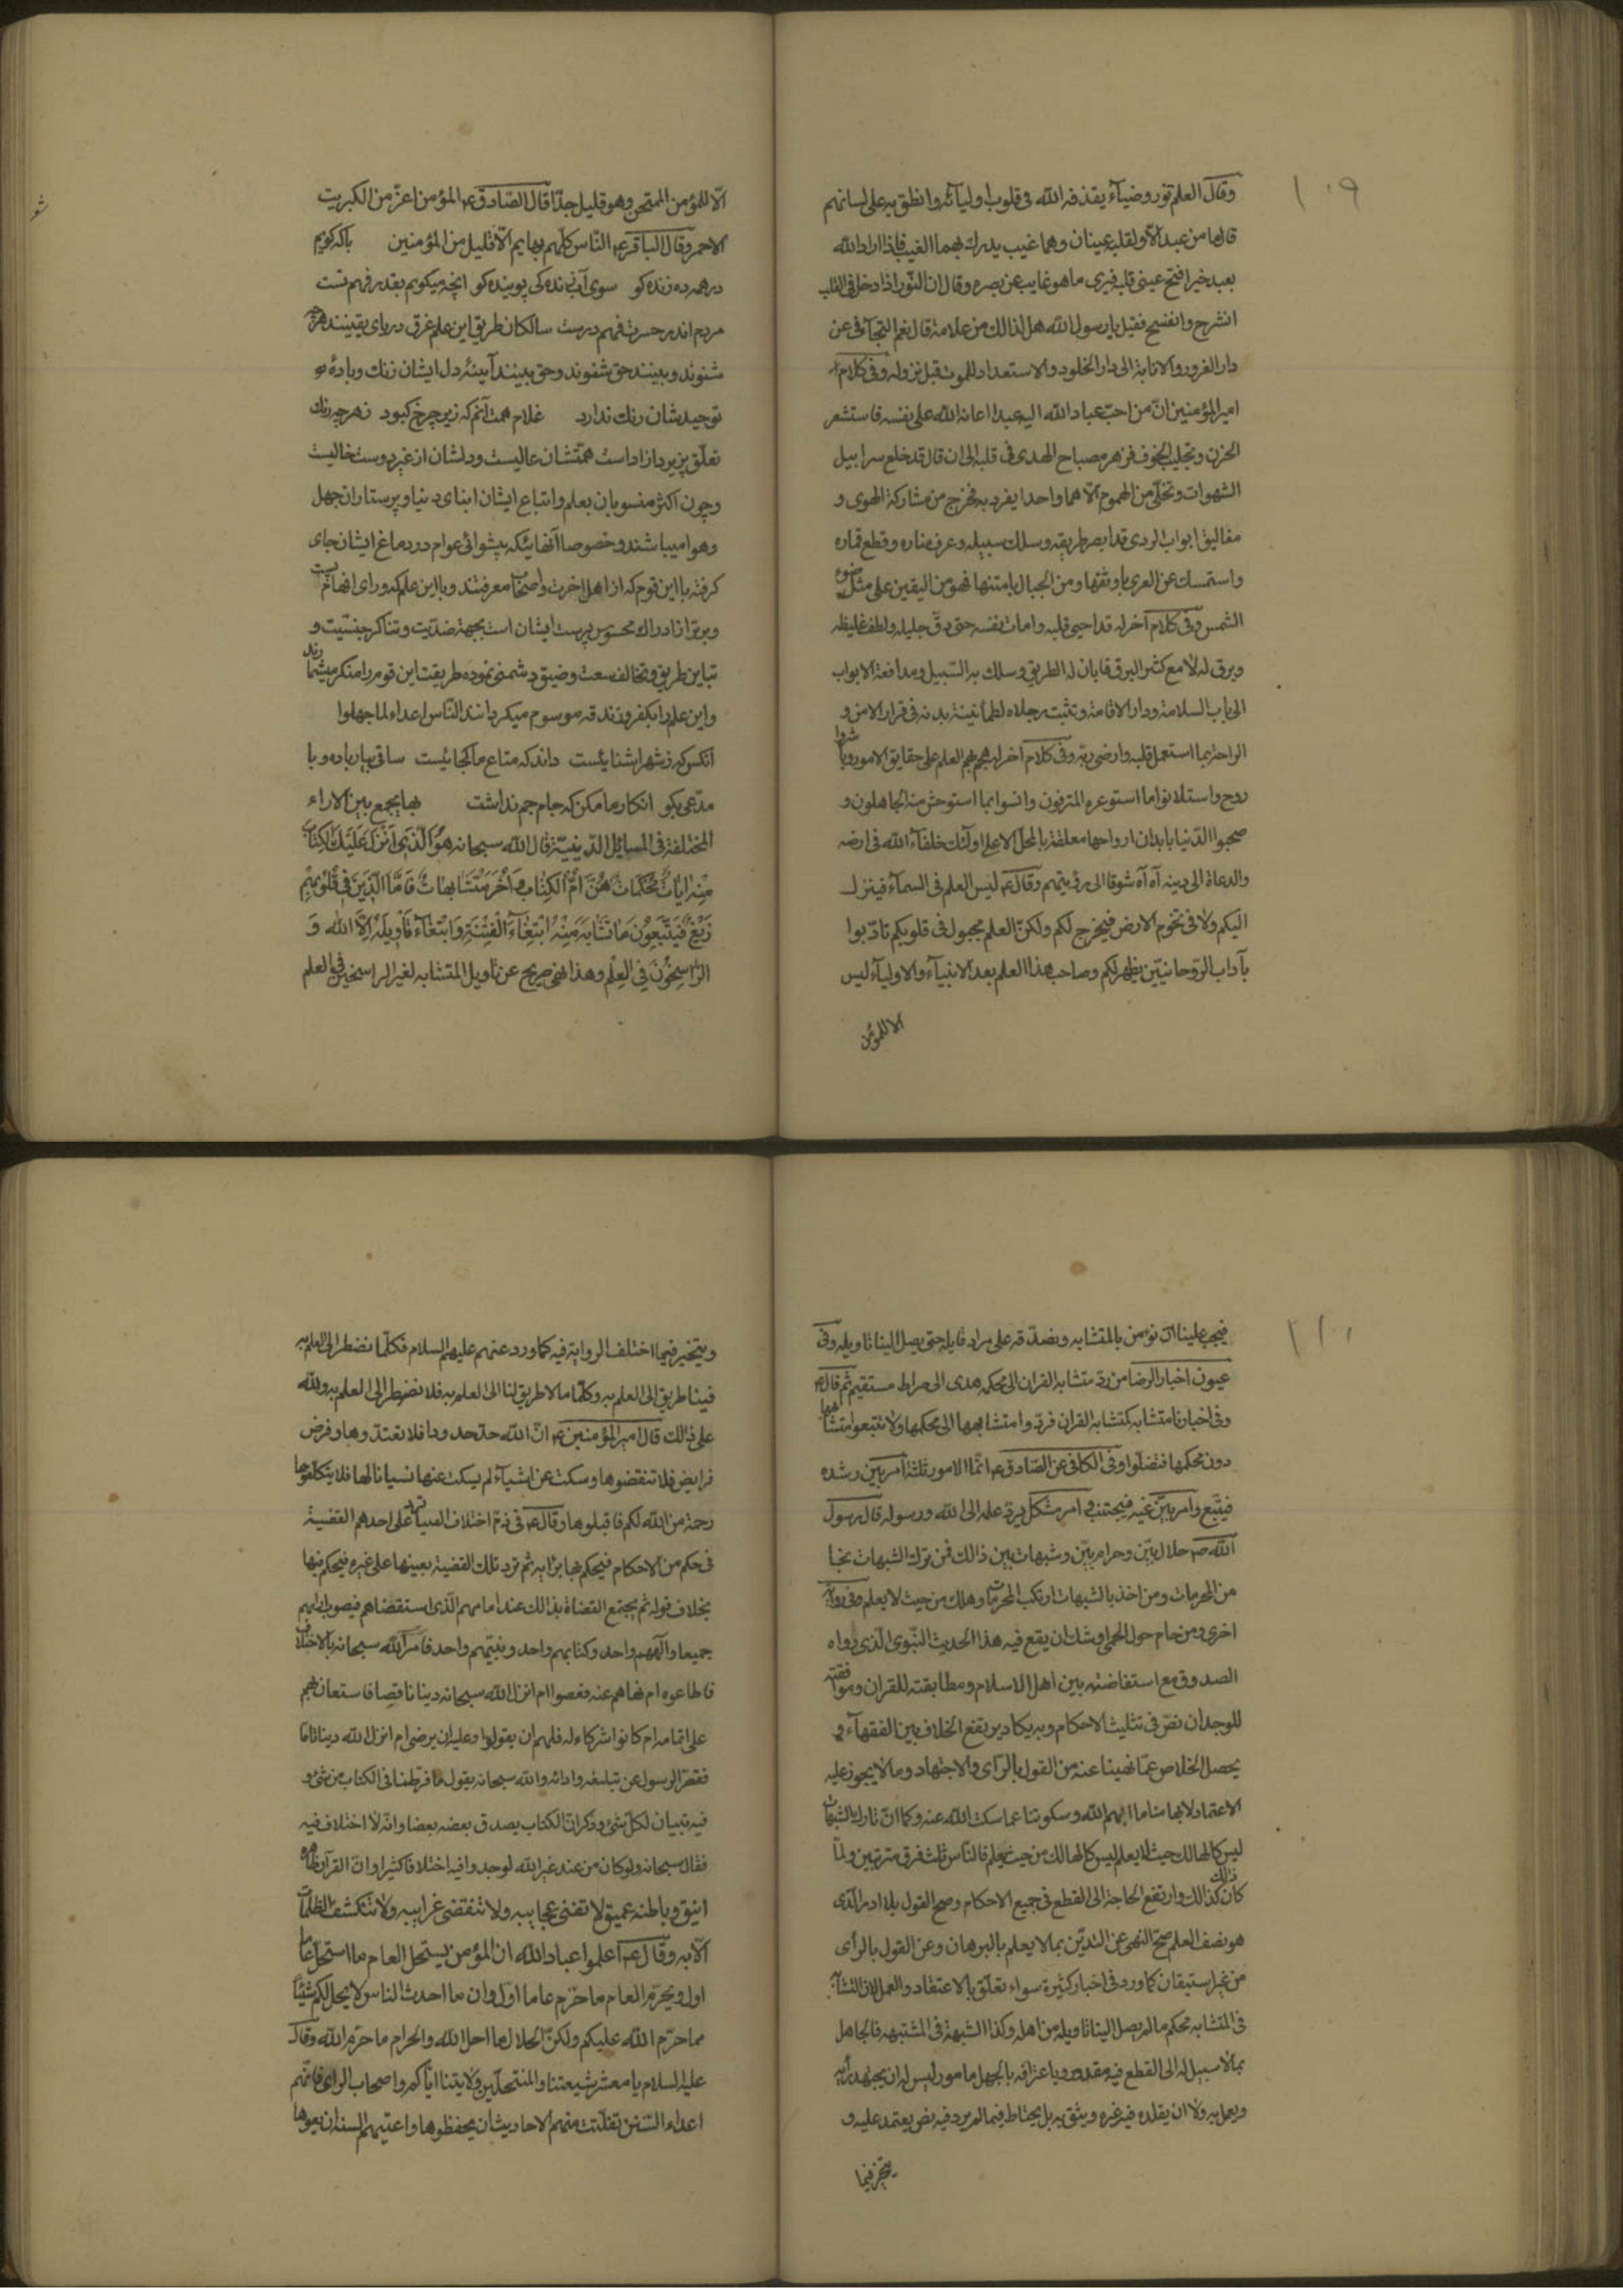 ١٠٩
وقال العلم نور وضياء يقذفه الله فى قلوب اوليائه وانطق به على لسانهم
قال ما من عبد الا ولقلبه عينان وهما غيب يدرك بهما الغيب فاذا اراد الله
بعبد خيرا فتح عينى قلبه فيرى ما هو غايب عن بصره وقال ان النور اذا دخل فى القلب
انشرح وانفسح فقيل يا رسول الله هل لذالك من علامة قال نعم التجافى عن
دار الغرور والانابة الى دار الخلود والاستعداد للموت قبل نزوله وفى كلام
امير المؤمنين ان من احب عباد الله اليه عبدا اعانه الله على نفسه فاستشعر
الحزن وتجلبب الخوف فزهر مصباح الهدى فى قلبه الى ان قال قد خلع سرابيل
الشهوات وتخلى من الهموم الا هما واحدا يفرد به فخرج من مشاركة الهوى و
مغاليق ابواب الردى قد ابصر طريقه وسلك سبيله وعرف مناره وقطع غماره
واستمسك عن العرى باوثقها ومن الجبال بامتنها فهو من اليقين على مثل ضوء
الشمس وفى كلام آخر له قد احيى قلبه وامات نفسه حتى دق جليله ولطف غليظه
وبرق له لامع كثير البرق فابان له الطريق وسلك به السبيل ومدافعة الابواب
الى باب السلامة ودار الاقامة وتثبت رجلاه لطمانينة بدنه فى قرار الامن و
الراحة بما استعمل قلبه وارضى ربه وفى كلام آخر له هجم بهم العلم على حقايق الامور وباشروا
روح واستلانوا ما استوعره المترفون وانسوا بما استوحش منه الجاهلون و
صحبوا الدنيا بابدان ارواحها معلقة بالمحل الاعلى اولئك خلفاء الله فى ارضه
والدعاة الى دينه آه آه شوقا الى رؤيتهم وقال ع ليس العلم فى السماء فينزل
اليكم ولا فى تخوم الارض فيخرج لكم ولكن العلم مجبول فى قلوبكم تادبوا
بآداب الروحانيين يظهر لكم وصاحب هذا العلم بعد الانبياء والاولياء ليس
الا للمؤمن
الا للمؤمن الممتحن وهو قليل جدا قال الصادق ع المؤمن اعز من الكبريت
الاحمر وقال الباقر ع الناس كلهم بهايم الا قليل من المؤمنين باكه كويم
در همه ده زنده كو سوى آب زندكى پوينده كو انچه ميكويم بقدر فهم تست
مردم اندر حسرت فهم درست سالكان طريق اين علم غرق درياى يقينند هرچه
شنوند و بينند حق شنوند و حق بينند آيينهٔ دل ايشان زنك و بادهٔ
توحيدشان رنك ندارد غلام همت آنم كه زير چرخ كبود زهر چه رنك
تعلق پزيرد ازاد است همتشان عاليست و دلشان از غير دوست خاليست
و چون اكثر منسوبان بعلم و اتباع ايشان ابناى دنيا و پرستاران جهل
و هوا ميباشند و خصوصا آنهائيكه پيشوائى عوام در دماغ ايشان جاى
كرفته با اين قوم كه از اهل اخرت و اصحاب معرفتند و با اين علم كه وراى افهام
و برتر از ادراك محسوس پرست ايشان است بجهة ضديت و تناكر جنسيت و
تباين طريق و تخالف سعت و ضيق دشمنى نموده طريقت اين قوم را منكر ميشمارند
و اين علم را بكفر و زندقه موسوم ميكردانند الناس اعداء لما جهلوا
انكس كه ز شهر اشنائيست داند كه متاع ما كجائيست ساقى بيار باده و با
مدعى بكو انكار ما مكن كه جام جم نداشت بها يجمع بين الاراء
المختلفة فى المسائل الدينية قال الله سبحانه هُوَ الَّذِى اَنْزَلَ عَلَيْكَ الْكِتَابَ
مِنْهُ ايَاتٌ مُحْكَمَاتٌ هُنَّ اُمُّ الْكِتَابِ وَاُخَرُ مُتَشَابِهَاتٌ فَاَمَّا الَّذِينَ فِى قُلُوبِهِمْ
زَيْغٌ فَيَتَّبِعُونَ مَا تَشَابَهَ مِنْهُ ابْتِغَاءَ الْفِتْنَةِ وَابْتِغَاءَ تَأْوِيلِهِ اِلَّا اللهُ وَ
الرَّاسِخُونَ فِى الْعِلْمِ وهذا نهى صريح عن تاويل المتشابه لغير الراسخين فى العلم
١١٠
فيجب علينا ان نؤمن بالمتشابه ونصدقه على مراد قايله حتى يصل الينا تاويله وفى
عيون اخبار الرضا من رد متشابه القران الى محكمه هدى الى صراط مستقيم ثم قال ع
وفى اخبارنا متشابه كمتشابه القران فردوا متشابهها الى محكمها ولا تتبعوا متشابهها
دون محكمها فتضلوا وفى الكافى عن الصادق ع انما الامور ثلثة امر بين رشده
فيتبع وامر بين غيه فيجتنب وامر مشكل يرد علمه الى الله ورسوله قال رسول
الله ص حلال بين وحرام بين وشبهات بين ذالك فمن ترك الشبهات نجا
من المحرمات ومن اخذ بالشبهات ارتكب المحرمات وهلك من حيث لا يعلم وفى رواية
اخرى ومن حام حول الحمى اوشك ان يقع فيه هذا الحديث النبوى الذى رواه
الصدوق مع استفاضته بين اهل الاسلام ومطابقته للقران وموافقته
للوجدان نص فى تثليث الاحكام وبه يكاد يرتفع الخلاف بين الفقهاء و
يحصل الخلاص عما نهينا عنه من القول بالراى والاجتهاد وما لا يجوز عليه
الاعتماد لابهامنا ما ابهم الله وسكوتنا عما سكت الله عنه وكما ان تارك الشبهات
ليس كالهالك حيث لا يعلم ليس كالهالك من حيث يعلم فالناس ثلث فرق مترتبين ولما
كان ذالك كذالك وارتفع الحاجة الى القطع فى جميع الاحكام وصح القول بلا ادرى الذى
هو نصف العلم صح النهى عن التدين بما لا يعلم بالبرهان وعن القول بالراى
من غير استيقان كما ورد فى اخبار كثيرة سواء تعلق بالاعتقاد والعمل لان التشابه
فى المتشابه محكم ما لم يصل الينا تاويله من اهله وكذا الشبهة فى المشتبه فالجاهل
بما لا سبيل له الى القطع فيه مقدور وباعترافه بالجهل مامور ليس له ان يجتهد برأيه
ويعمل به ولا ان يقلده فيه غيره ويثق به بل يحتاط فيما لم يرد فيه نص يعتمد عليه و
يتخير فيما
ويتخير فيما اختلف الرواية فيه كما ورد عنهم عليهم السلام فكلما نضطر الى العلم به
فينا طريق الى العلم به وكلما لا طريق لنا الى العلم به فلا نضطر الى العلم به ولله
على ذالك قال امير المؤمنين ع ان الله حد حدودا فلا تعتدوها وفرض
فرايض فلا تنقضوها وسكت عن اشياء لم يسكت عنها نسيانا لها فلا تتكلفوها
رحمة من الله لكم فاقبلوها وقال ع فى ذم اختلاف الفتيا ترد على احدهم القضية
فى حكم من الاحكام فيحكم بها برايه ثم ترد تلك القضية بعينها على غيره فيحكم فيها
بخلاف قوله ثم يجتمع القضاة بذالك عند امامهم الذى استقضاهم فيصوب ارائهم
جميعا والههم واحد وكتابهم واحد ونبيهم واحد فامر الله سبحانه بالاختلاف
فاطاعوه ام نهاهم عنه فعصوا ام انزل الله سبحانه دينا ناقصا فاستعان بهم
على اتمامه ام كانوا شركاء له فلهم ان يقولوا وعليه ان يرضى ام انزل الله دينا تاما
فقصر الرسول عن تبليغه وادائه والله سبحانه يقول ما فرطنا فى الكتاب من شئ و
فيه تبيان لكل شئ وذكر ان الكتاب يصدق بعضه بعضا وانه لا اختلاف فيه
فقال سبحانه ولو كان من عند غير الله لوجدوا فيه اختلافا كثيرا وان القرآن ظاهره
انيق وباطنه عميق لا تفنى عجايبه ولا تنقضى غرايبه ولا تنكشف الظلمات
الا به وقال ع اعلموا عباد الله ان المؤمن يستحل العام ما استحل عاما
اول ويحرم العام ما حرم عاما اول وان ما احدث الناس لا يحل لكم شيئا
مما حرم الله عليكم ولكن الحلال ما احل الله والحرام ما حرم الله وقال
عليه السلام يا معشر شيعتنا والمنتحلين ولايتنا اياكم واصحاب الراى فانهم
اعداء السنن تفلتت منهم الاحاديث ان يحفظوها واعيتهم السنة ان يعوها